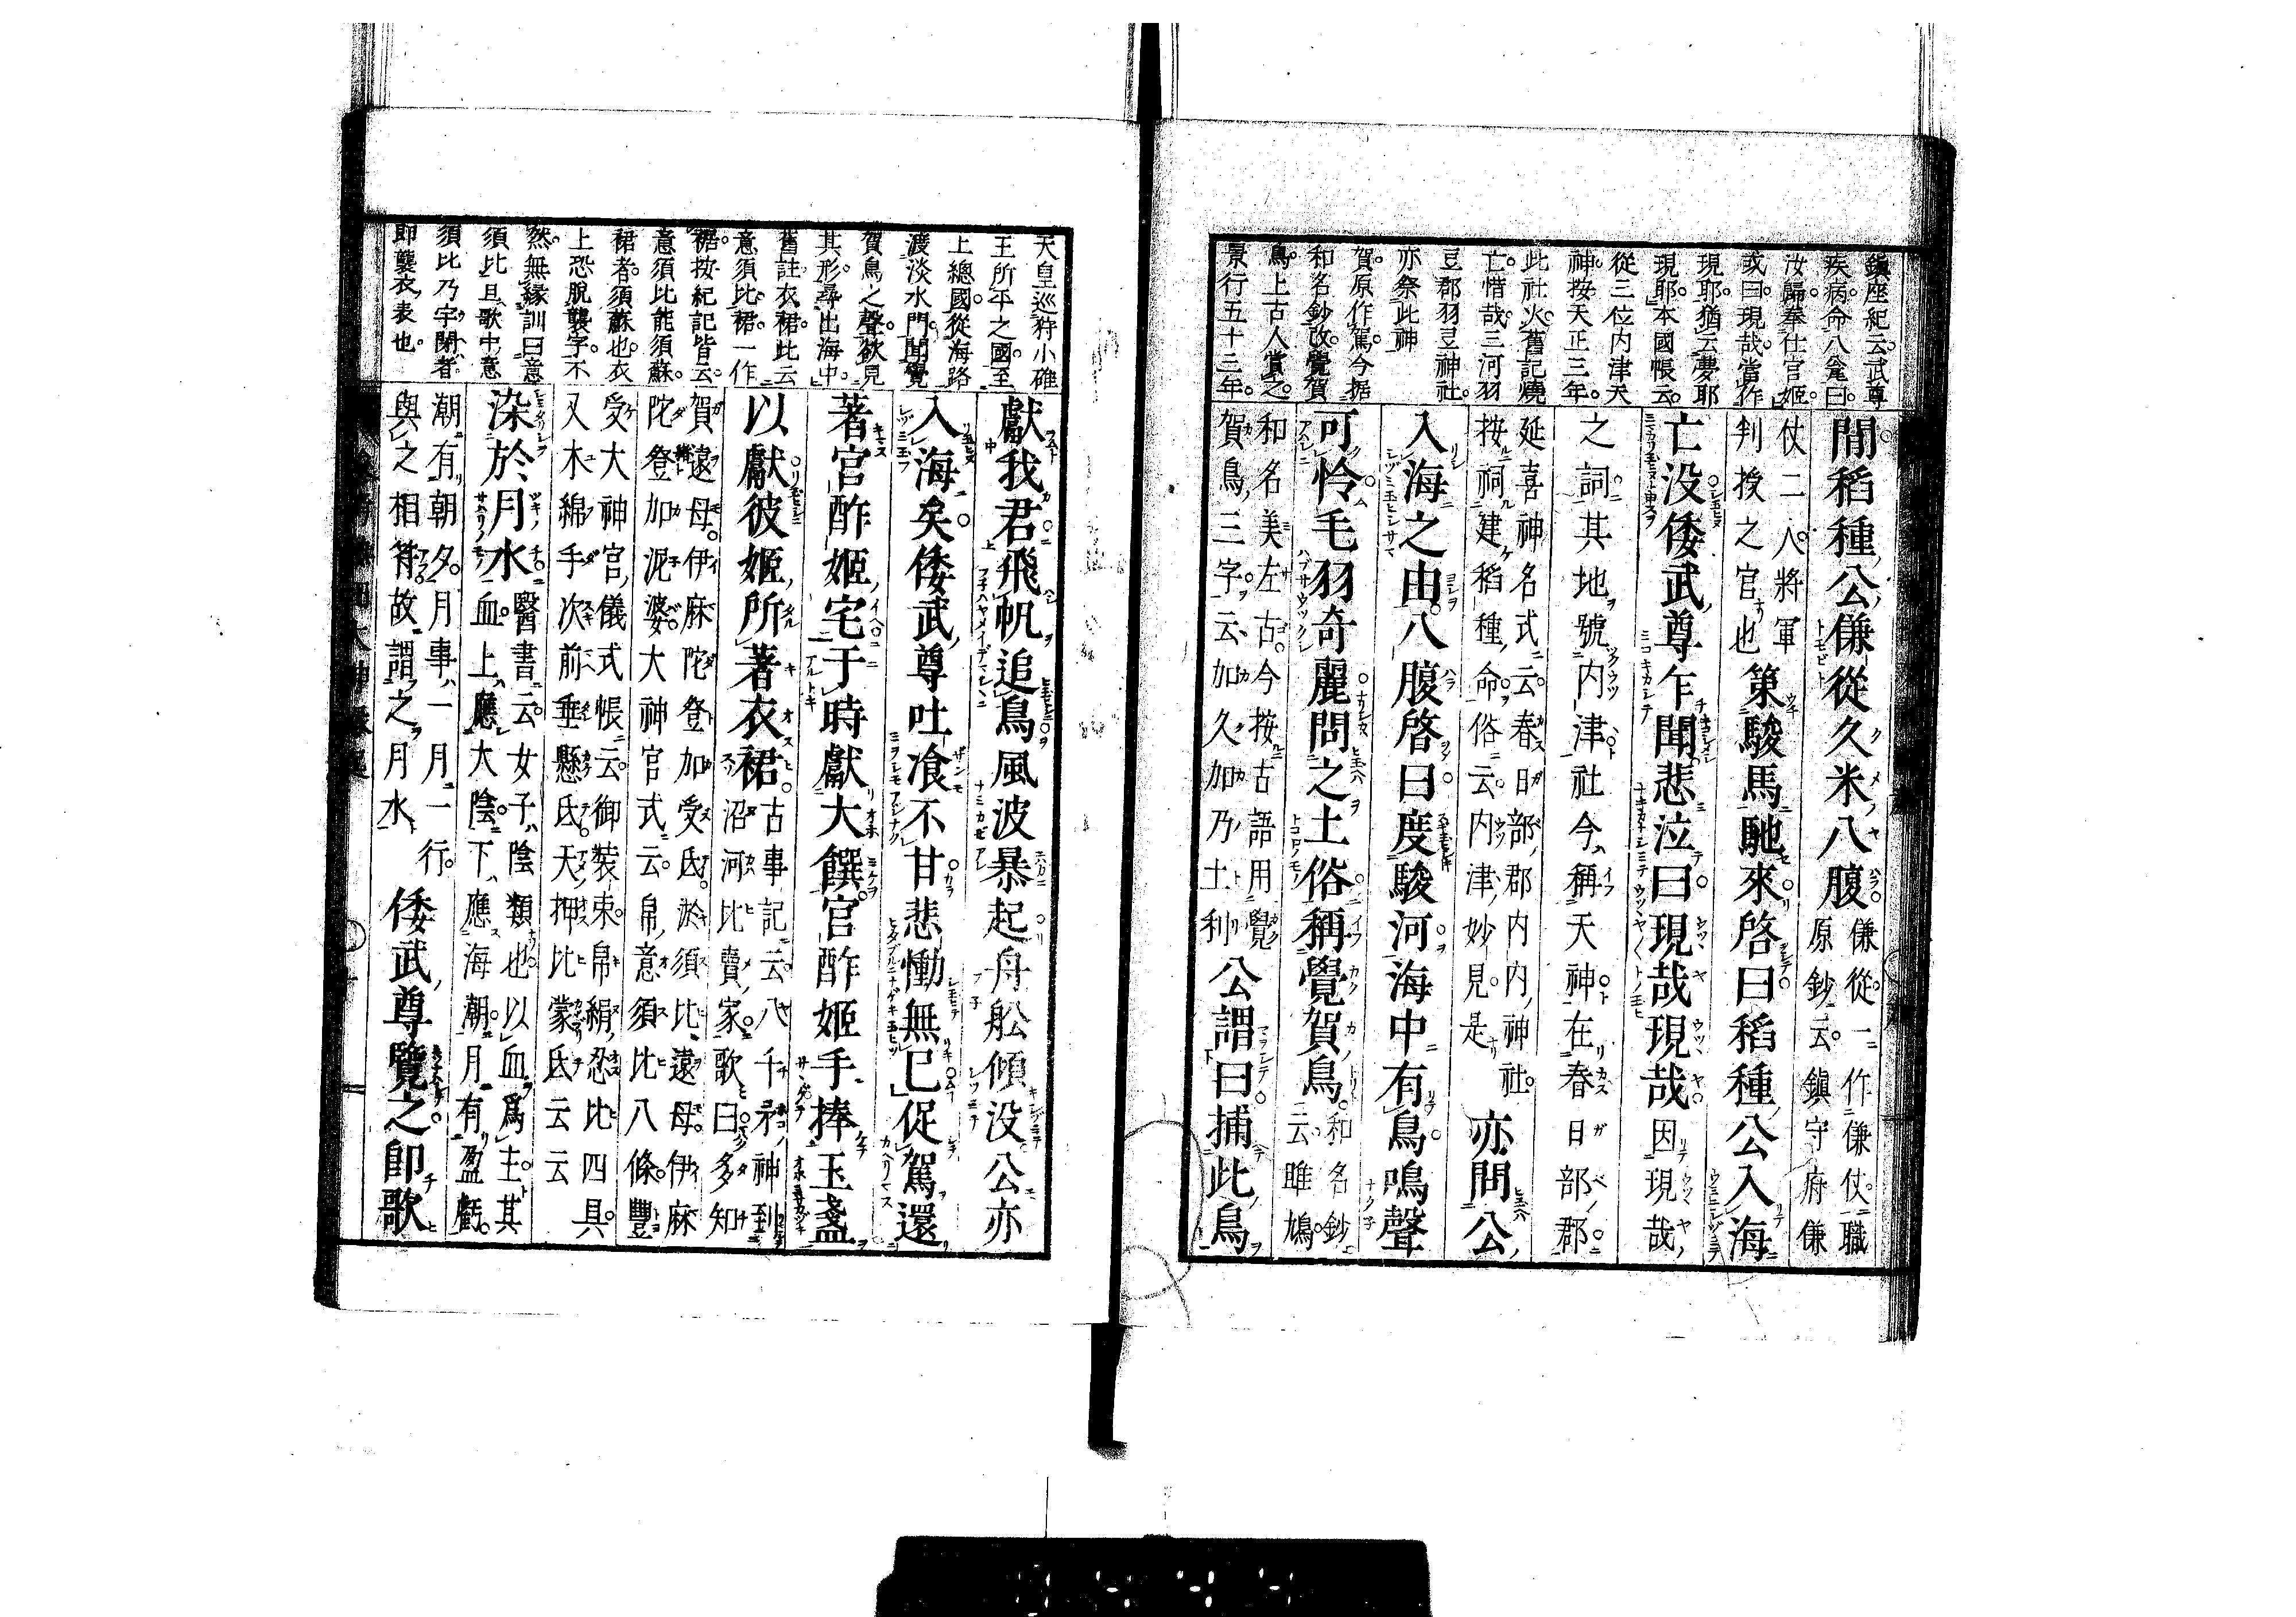 鎭座紀云武尊
疾病命八龠曰
汝歸奉仕官姬
或曰現哉當作
現耶猶云夢耶
現耶本國帳云
從三位内津天
神按天正三年
此社火舊記燒
亡惜哉三河羽
豆郡羽豆神社
亦祭此神
賀原作駕今据
和名鈔改覺賀
鳥上古人賞之
景行五十三年
間稻種公傔從久米八腹
傔從一作傔仗職
原鈔云鎭守府傔
仗二人將軍
判授之官也
策駿馬馳來啓曰稻種公入海
亡没倭武尊乍聞悲泣曰現哉現哉
因現哉
之詞其地號内津社今稱天神在春日部郡
延喜神名式云春日部郡内内神社
按祠建稻種命俗云内津妙見是
亦問公
入海之由八腹啓曰度駿河海中有鳥鳴聲
可怜毛羽奇麗問之土俗稱覺賀鳥
和名鈔
云雎鳩
和名美左古今按古語用覺
賀鳥三字云加久加乃土利
公謂曰捕此鳥
天皇巡狩小碓
王所平之國至
上總國從海路
渡淡水門聞覺
賀鳥之聲欲見
其形尋出海中
舊註衣裙此云
意須比裙一作
裾按紀記皆云
意須比能須蘇
裙者須蘇也衣
上恐脫襲字不
然無緣訓曰意
須比且歌中意
須比乃宇閉者
即襲衣表也
獻我君飛帆追鳥風波暴起舟舩傾没公亦
入海矣倭武尊吐飡不甘悲慟無已促駕還
著宮酢姬宅于時獻大饌宮酢姬手捧玉盞
以獻彼姬所著衣裙
古事記云八千矛神到
沼河比賣家歌曰多知
賀遠母伊麻陀登加受氐淤須比遠母伊麻
陀登加泥婆大神宮式云帛意須比八條豐
受大神宮儀式帳云御裝束帛絹忍比四具
又木綿手次前垂懸氐天押比蒙氐云云
染於月水
醫書云女子陰類也以血爲主其
血上應大陰下應海潮月有盈虧
潮有朝夕月事一月一行
與之相符故謂之月水
倭武尊覽之即歌